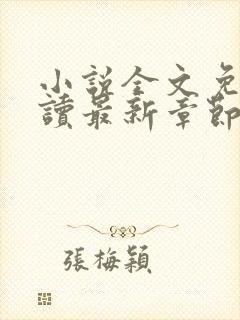 小說全文免
讀最新章節
張梅穎